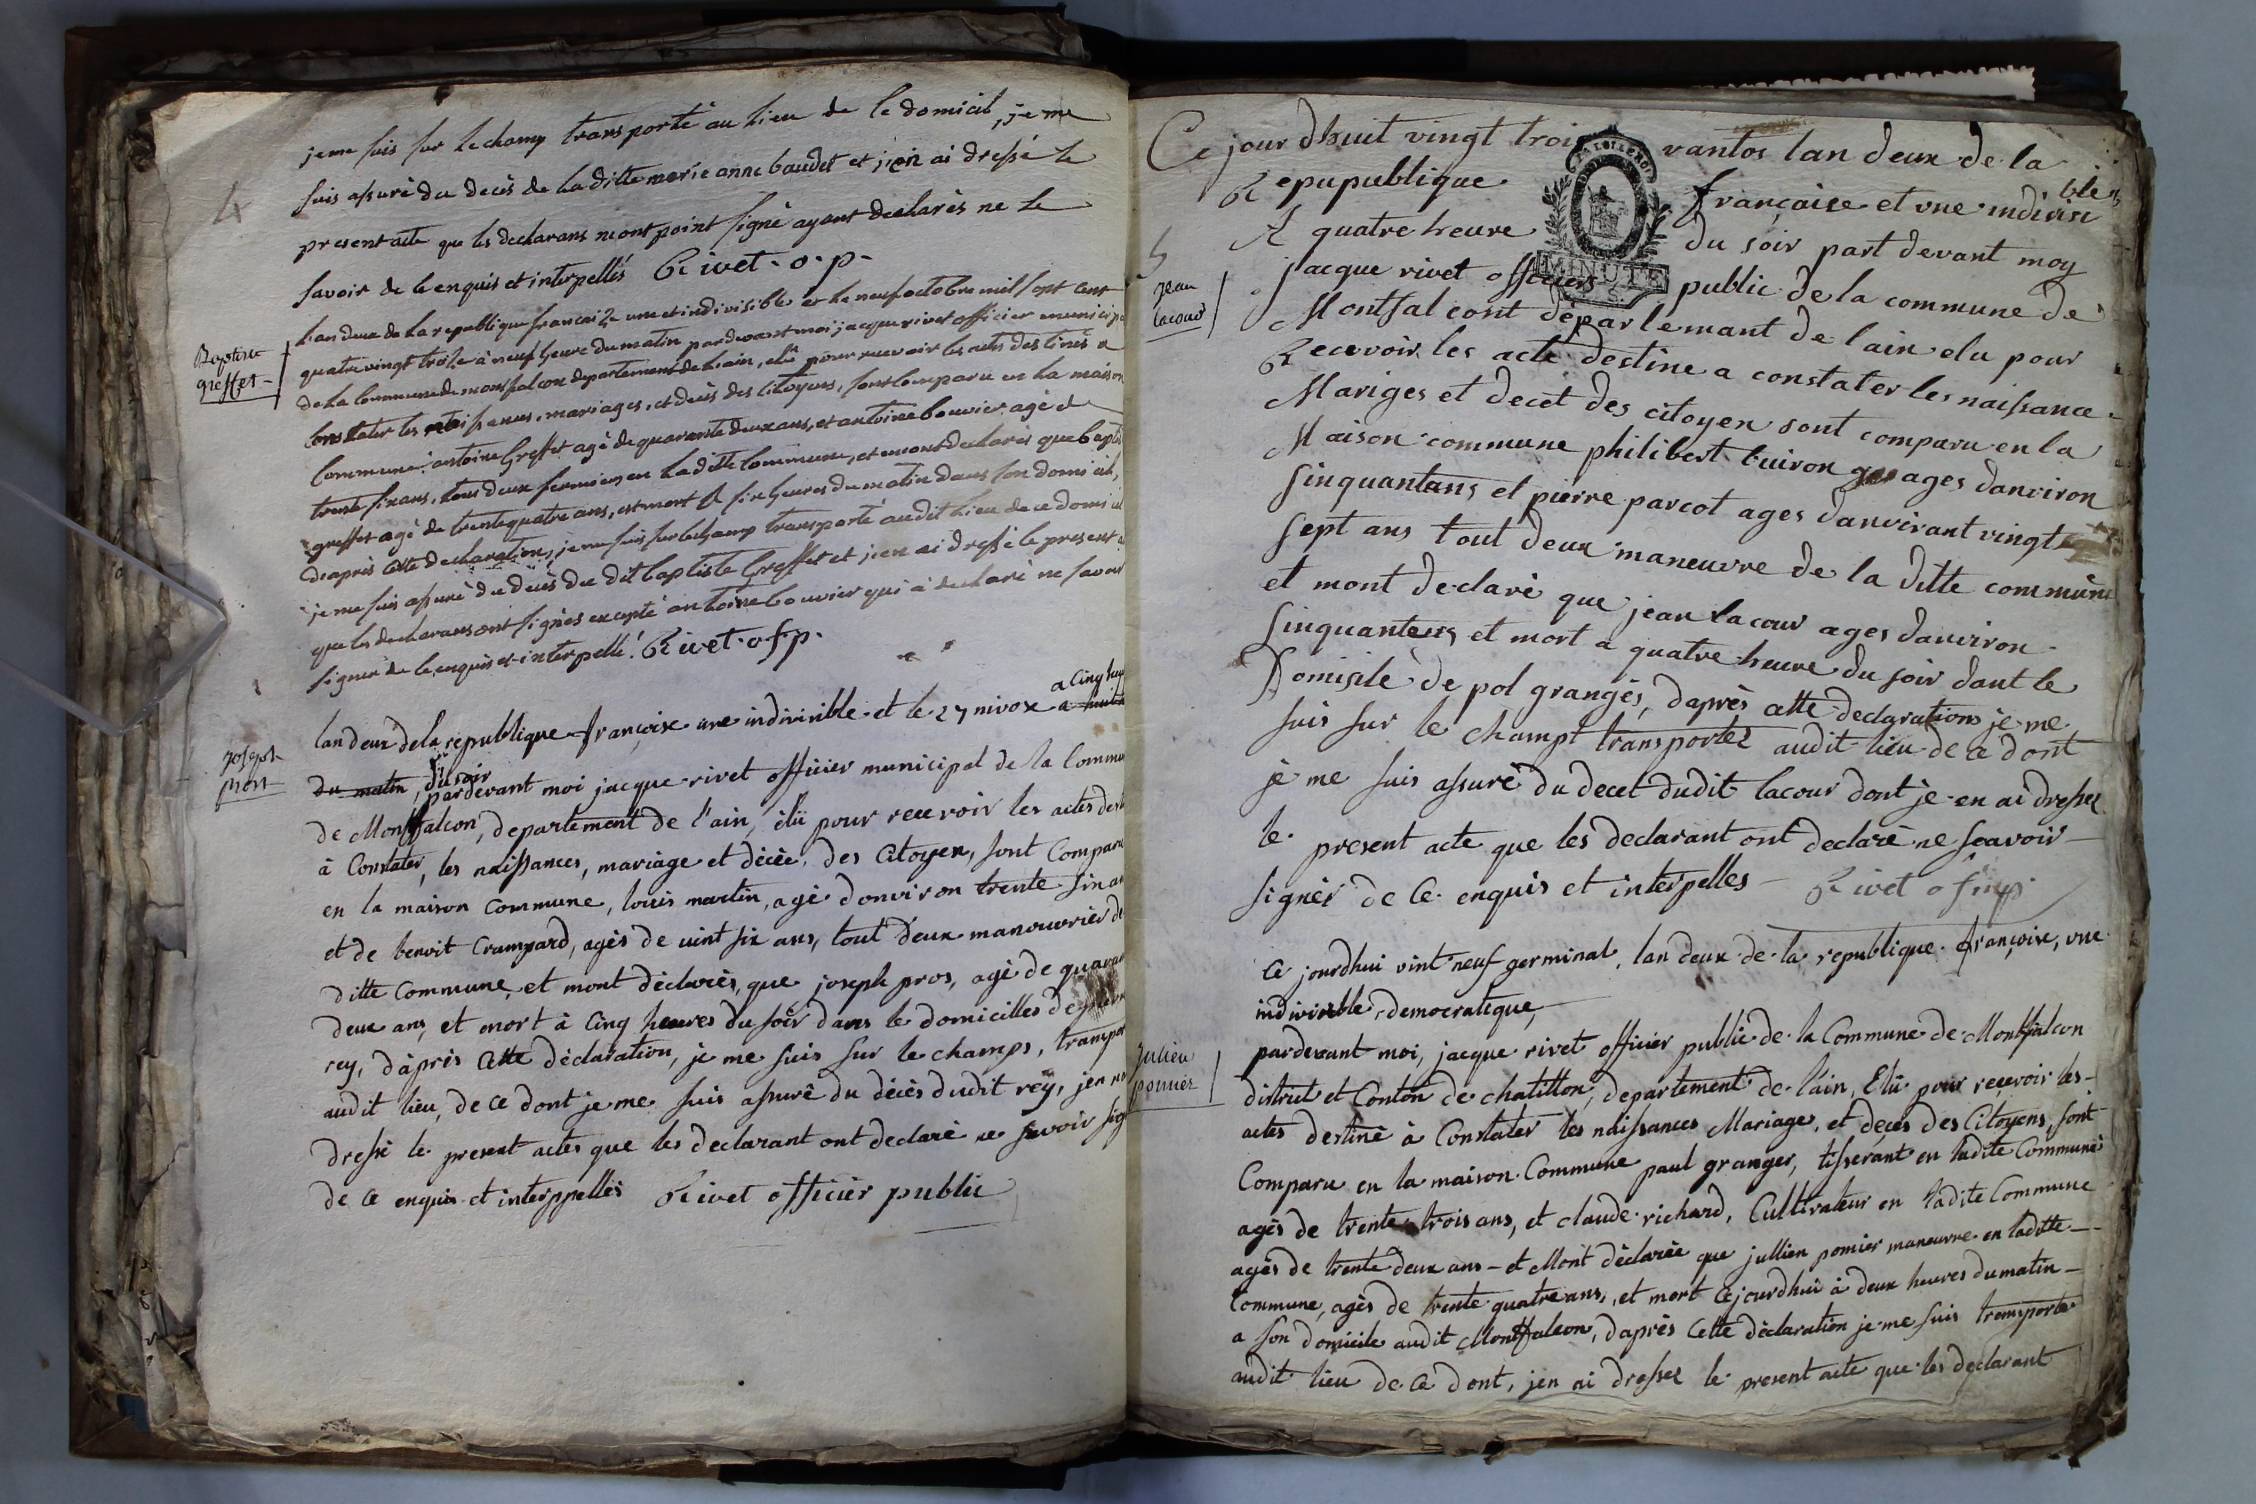 4
je me suis sur le champ transporté au lieu de le domicil, je me
suis assuré du decès de la ditte marie anne baudet et j'en ai dressé le
present acte que les declarans n'ont point signé ayant declarés ne le
savoir de le enquis et interpellés Rivet . o . p .
Baptiste
greffet
l'an deux de la republique francaise une et indivisible et le neuf octobre mil sept cent
quatre vingt treize à neuf heure du matin par devant moi jacque rivet officier municip
de la commune de monfalcon departement de l'ain, élû pour recevoir les actes destinés a
constater les naissances, mariages, et decès des citoyens, sont comparu en la maison
commune antoine Greffet agé de quarante deux ans, et antoine bouvier agé de
trente six ans, tous deux fermiers en la ditte commune, et m'ont declarés que baptis
greffet agé de trente quatre ans, est mort à six heures du matin dans son domicil,
d'après cette declaration, je me suis sur le champ transporté au dit lieu de ce domicil
je me suis assuré du decès du dit baptiste Greffet et j'en ai dressé le present
que les declarans ont signés excepté antoine bouvier qui à declaré ne savoir
signer de le enquis et interpellé. Rivet . o f p .
joseph
pros
a cinq heu
lan deux de la republique françoise une indivisible et le 27 nivose
du matin, du soir
par devant moi jacque rivet officier municipal de la Commu
de Montfalcon, departement de l'ain, élü pour recevoir les actes dest
à Constater, les naissances, mariage et décèe, des Citoyen, sont Comparu
en la maison commune, louis martin, agé d'environ trente sin an
et de benoit Crampard, agés de vint six ans, tout deux manouvrier de
ditte Commune, et mont déclarés, que joseph pros, agé de quaran
deux ans, et mort à Cinq heures du soir dans le domicilles de
rey, d'après Cette déclaration, je me suis sur le champs, transpor
audit lieu, de ce dont je me suis assuré du décès dudit rey, jen
dressé le present actes que les declarant ont declaré ne savoir sig
de ce enquis et interppellés Rivet officier public
Ce jour dhuit vingt trois vantos lan deux de la
Repupublique françaire et une indivisi
ble
A quatre heure du soir part devant moy
5
jean
lacour
jacque rivet officiers public de la commune de
Montfalcont departemant de lain elu pour
Recevoir les acte destine a constater les naissance
Mariges et decet des citoyen sont comparu en la
Maison commune philibert buiron ages danviron
sinquantans et pierre parcot ages danvirant vingt
sept ans tout deux maneuvre de la ditte commune
et mont declaré que jean lacour ages danviron
sinquantens et mort a quatre heure du soir dant le
Domisile de pol grangés, daprès cette declarations je me
suis sur le champt transportez audit lieu de ce dont
je me suis assuré du decet dudit lacour dont je en ai dressez
le present acte que les declarant ont declaré ne scavoir
signér de Ce enquis et interpelles Rivet
Ce jourdhui vint neuf germinal, lan deux de la republique françoise, une
indivisible, democratique,
julien
pomier
pardevant moi, jacque rivet officier public de la Commune de Montfalcon
district et Conton de chatillon, departement de l'ain, Elû pour reçevoir les
actes destiné à Constater les naissances Mariage, et deçes des Citoyens, sont
Comparu en la maison Commune paul granger, tisserant en ladite Communes
agés de trente trois ans, et claude richard, Cultivateur en ladite Commune
agés de trente deux ans - et Mont déclarée que jullien pomier maneuvre en laditte
Commune, agés de trente quatre ans, et mort Cejourdhui à deux heures du matin
a son domicile audit Montfalcon, daprés Cette déclaration je me suis transporté
audit lieu de ce dont, jen ai dressez le present acte que les declarant